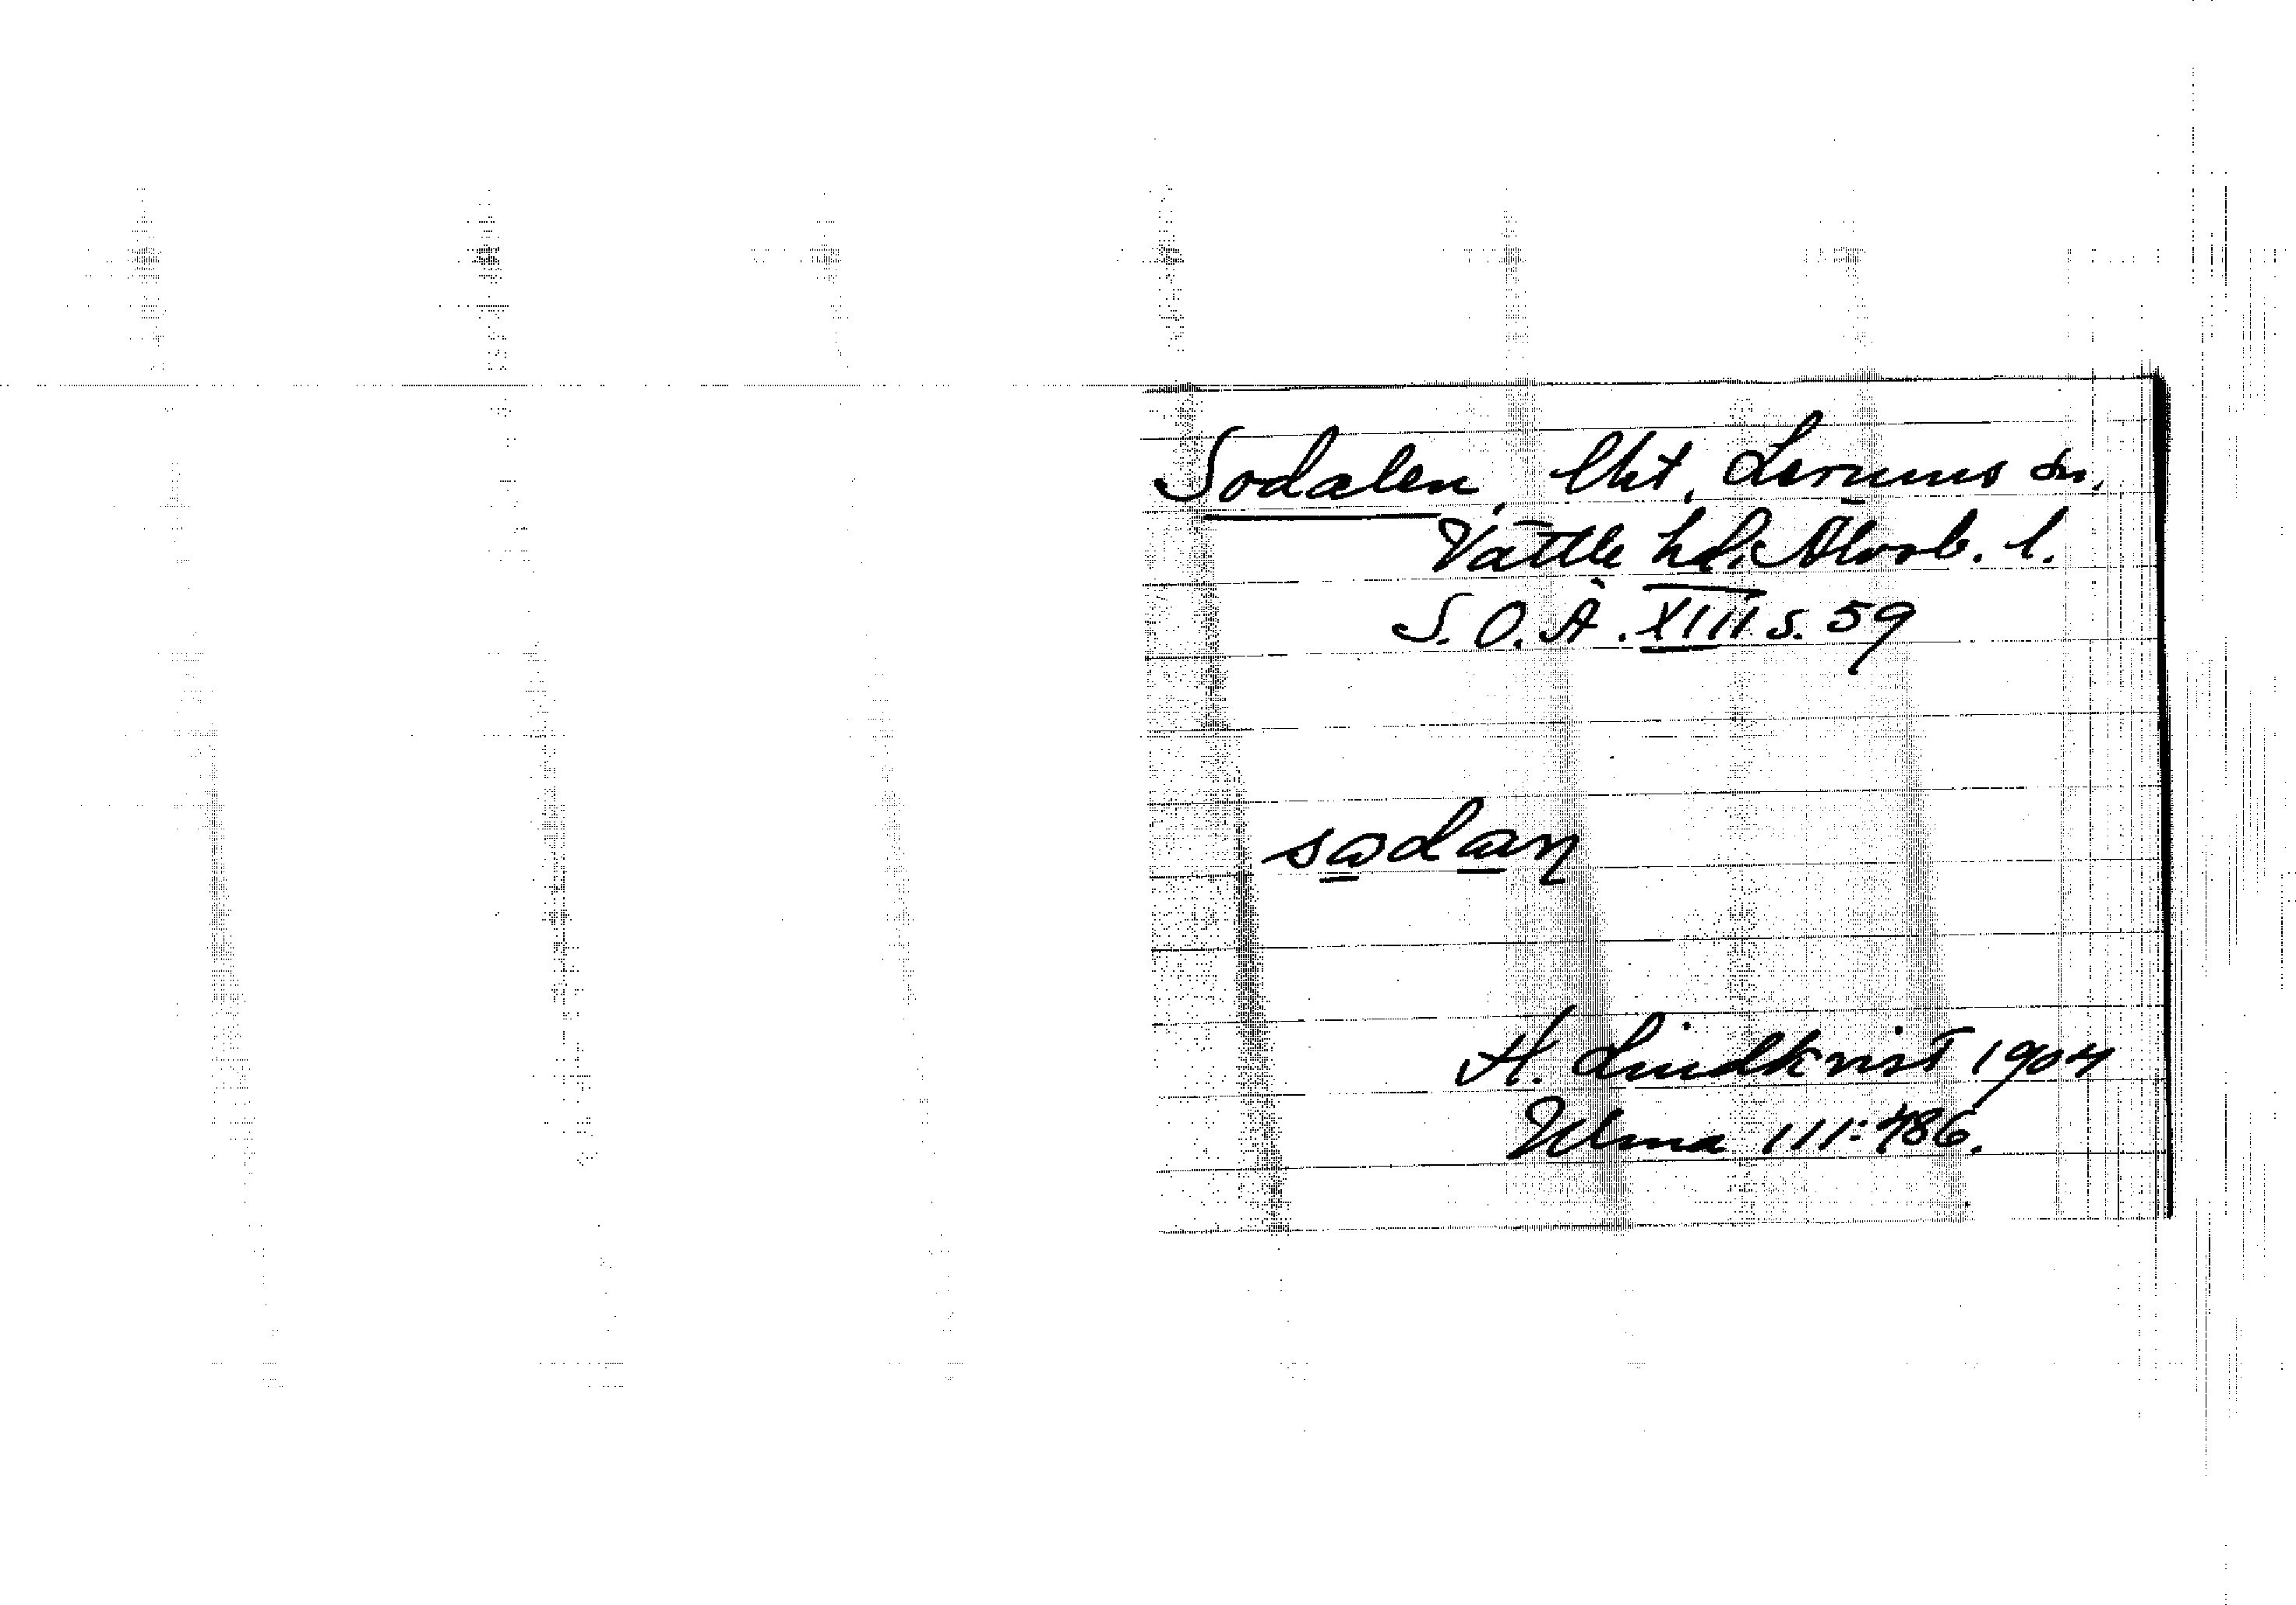 Sodalen, lht, Lerums sn,
Vättle hd, Älvsb. l.
S. O. Ä. XIII s. 59
sodan
H. Lindkvist 1904
Ulma 111:486.